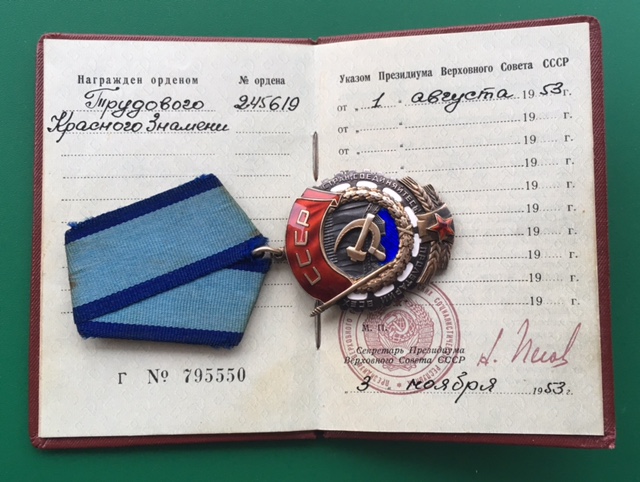 Награжден орденом № ордена
Трудового 245619
Красного Знамени
Г № 795550
Указом Президиума Верховного Совета СССР
от „ 1 „ августа 1953 г.
от „ „ 19 г.
от „ „ 19 г.
от „ „ 19 г.
19 г.
19 г.
19 г.
19 г.
19 г.
19 г.
СССР
М. П.
Секретарь Президиума
Верховного Совета СССР
3 ноября 1953 г.